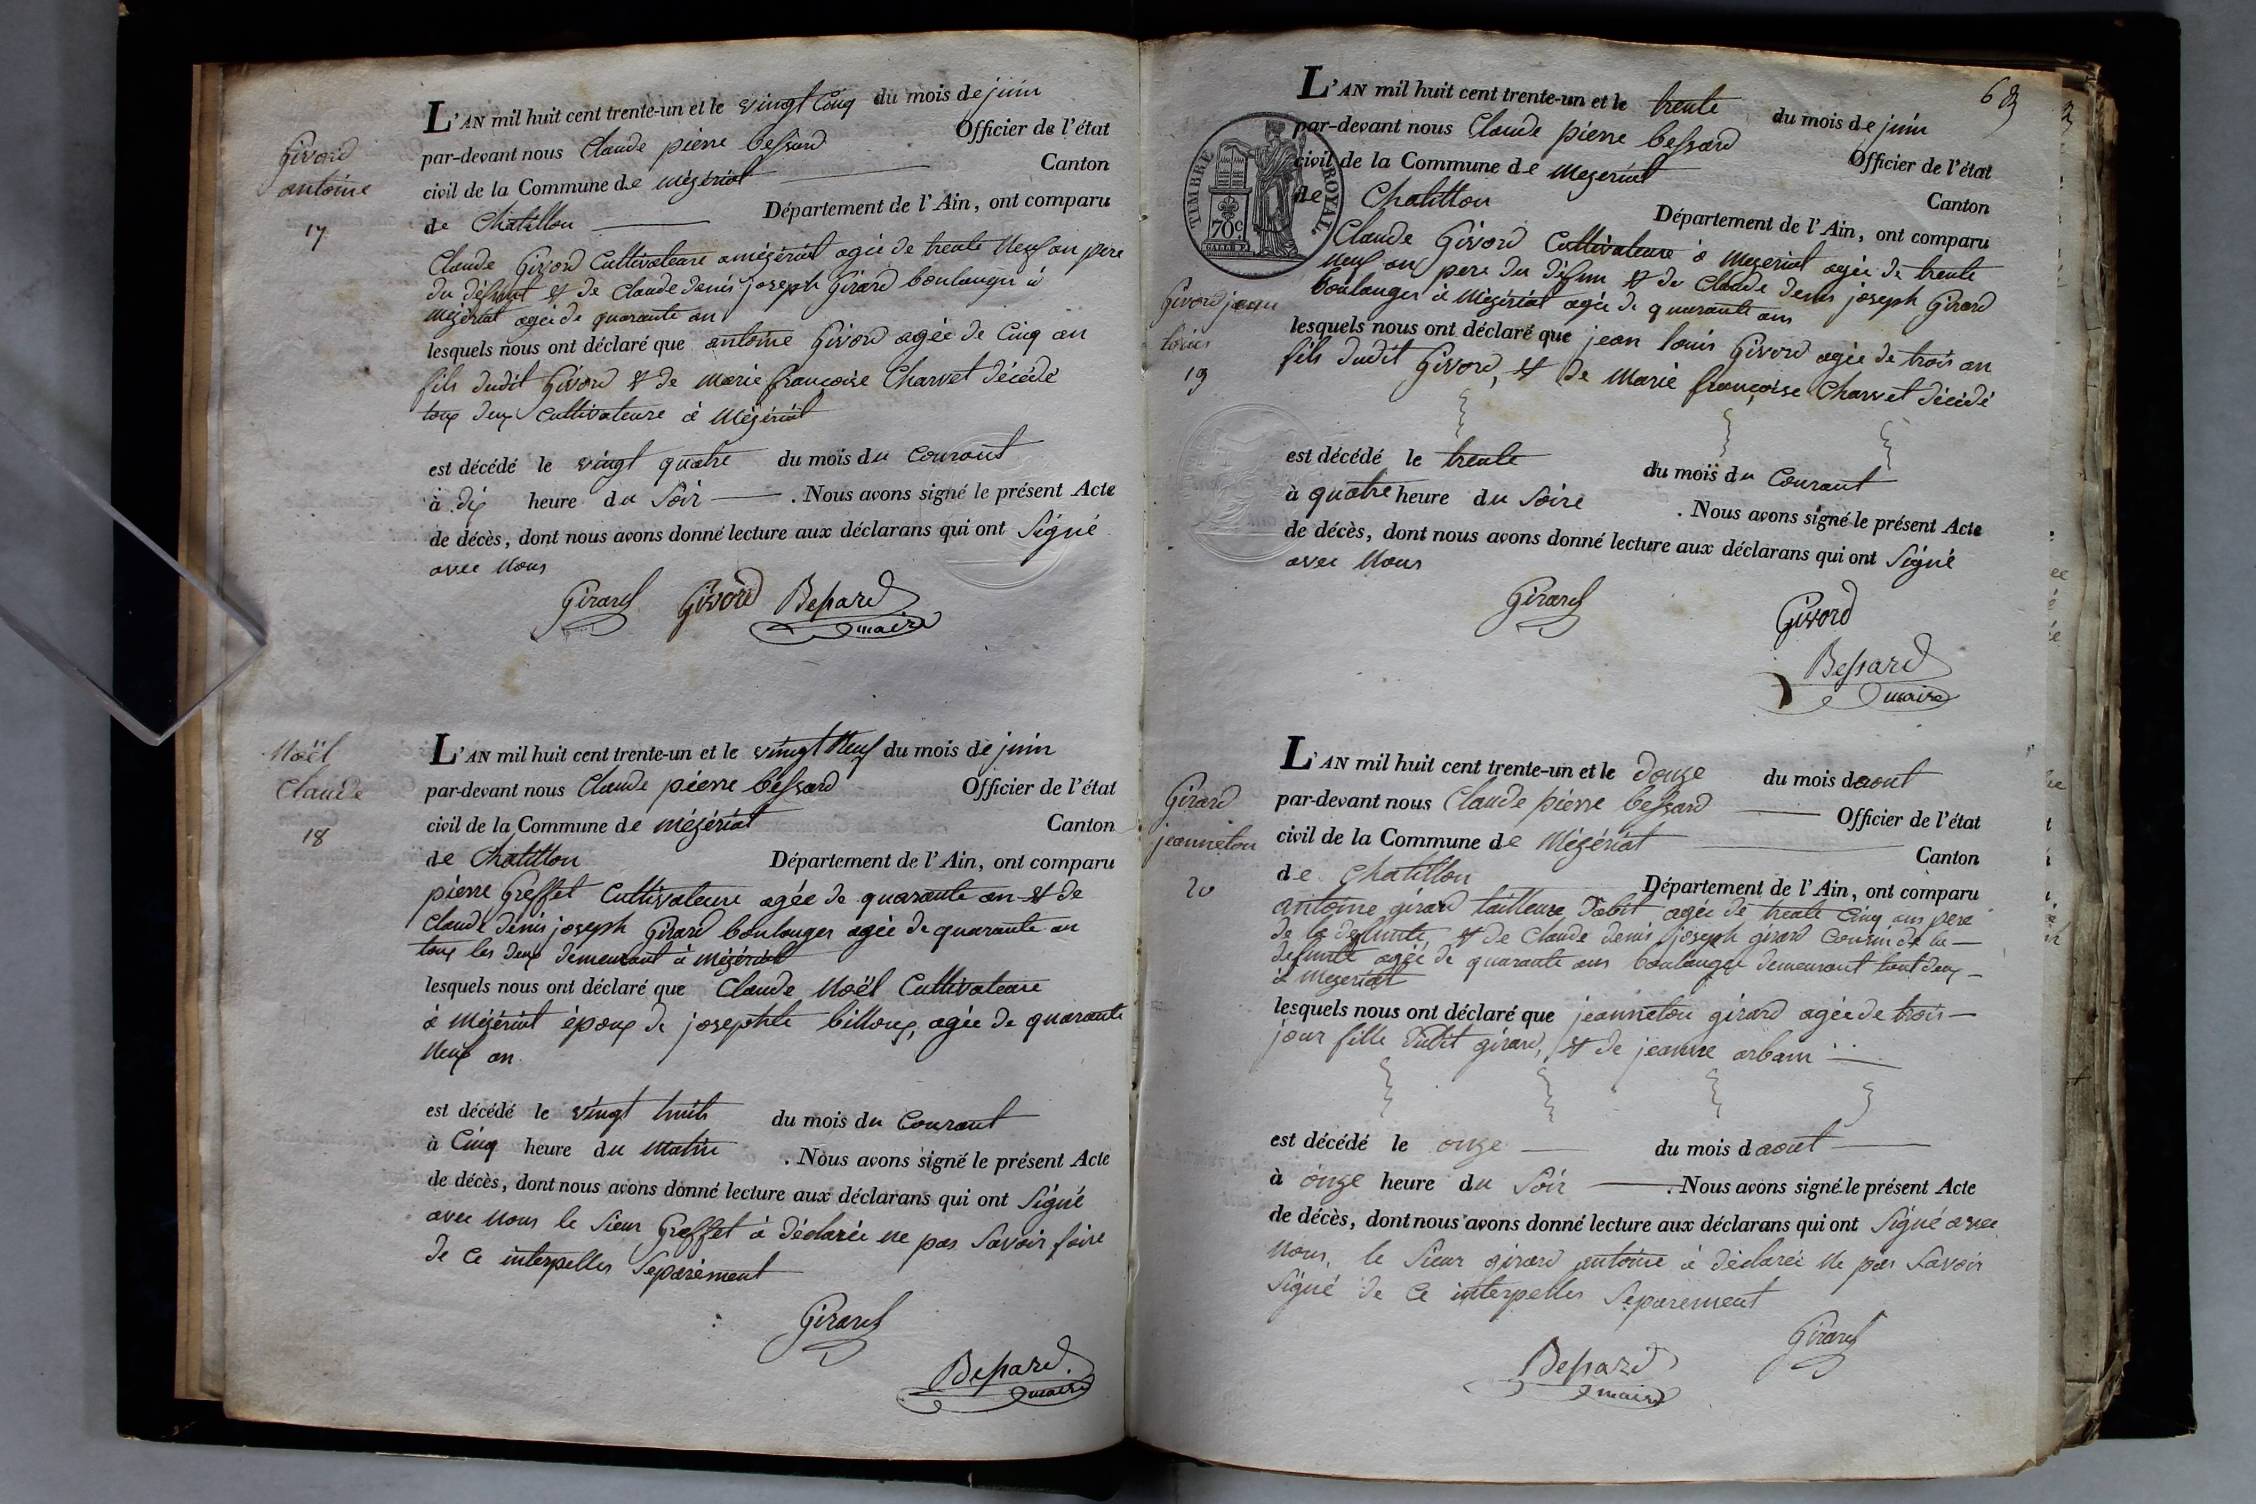 Givord
antoine
17
L'AN mil huit cent trente-un et le vingt Cinq du mois de juin
par-devant nous Claude pierre bessard Officier de l'état
civil de la Commune de mézériat Canton
de Chatillon Département de l'Ain, ont comparu
Claude Givord Cultivateure a mézériat agée de trente Neuf an pere
du défunt & de Claude denis joseph Girard boulanger à
mézériat agée de quarante an
lesquels nous ont déclaré que antoine Givord agée de Cinq an
fils dudit Givord & de marie françoise Charvet décédé
tous deux Cultivateure à Mézériat
est décédé le vingt quatre du mois du Courant
à dix heure du Soir . Nous avons signé le présent Acte
de décès, dont nous avons donné lecture aux déclarans qui ont Signé
avec Nous
Girard Givord Bessard
maire
Noël
Claude
18
L'AN mil huit cent trente-un et le vingt Neuf du mois de juin
par-devant nous Claude pierre bessard Officier de l'état
civil de la Commune de mézériat Canton
de Chatillon Département de l'Ain, ont comparu
pierre Greffet Cultivateure agée de quarante an & de
Claude denis joseph Girard boulanger agée de quarante an
tous les deux demeurant à mézériat
lesquels nous ont déclaré que Claude Noël Cultivateure
à Mézériat époux de josephte billoux, agée de quarante
Neuf an
est décédé le vingt huit du mois du Courant
à Cinq heure du matin . Nous avons signé le présent Acte
de décès, dont nous avons donné lecture aux déclarans qui ont Signé
avec Nous le Sieur Greffet à déclarée ne pas Savoir faire
de Ce interpelles Séparément
Girard
Bessard
maire
TIMBRE ROYAL
70 c
Givord jean
louis
19
L'AN mil huit cent trente-un et le trente du mois de juin
par-devant nous Claude pierre bessard Officier de l'état
civil de la Commune de mezériat Canton
de Chatillon Département de l'Ain, ont comparu
Claude Givord Cultivateure à Mezeriat agée de trente
Neuf an pere du défun & de Claude denis joseph Girard
boulanger à Mézériat agée de quarante ans
lesquels nous ont déclaré que jean louis Givord agée de trois an
fils dudit Givord, & de Marie françoise Charvet décédé
est décédé le trente du mois du Courant
à quatre heure du Soire . Nous avons signé le présent Acte
de décès, dont nous avons donné lecture aux déclarans qui ont Signé
avec Nous
Girard
Givord
Bessard
maire
Girard
jeanneton
20
L'AN mil huit cent trente-un et le douze du mois d aout
par-devant nous Claude pierre bessard Officier de l'état
civil de la Commune de Mézériat Canton
de Chatillon Département de l'Ain, ont comparu
antoine girard tailleure d'abit agée de trente Cinq ans pere
de la defunte, & de Claude denis joseph girard Cousin de la
defunte agée de quarante ans boulanger demeurant tout deux
à Mezeriat
lesquels nous ont déclaré que jeanneton girard agée de trois
jour fille dudit girard, & de jeanne arbain
est décédé le onze du mois d aout
à onze heure du Soir . Nous avons signé le présent Acte
de décès, dont nous avons donné lecture aux déclarans qui ont Signé avec
Nous, le Sieur girard antoine à déclarée Ne pas Savoir
Signé de Ce interpelles Séparement
Girard
Bessard
maire